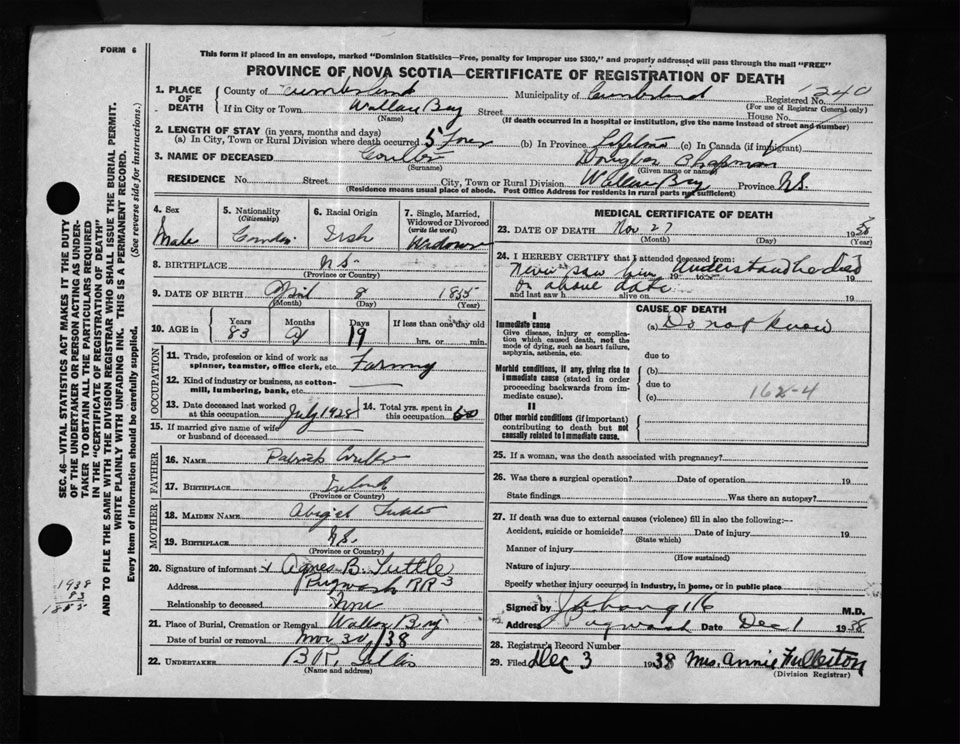 FORM 6
This form if placed in an envelope, marked "Dominion Statistics—Free, penalty for improper use $300," and properly addressed will pass through the mail "FREE"
PROVINCE OF NOVA SCOTIA—CERTIFICATE OF REGISTRATION OF DEATH
1. PLACE OF DEATH County of Cumberland Municipality of Cumberland Registered No. 1240
(For use of Registrar General only)
If in City or Town Wallace Bay Street House No.
(Name) (If death occurred in a hospital or institution, give the name instead of street and number)
2. LENGTH OF STAY (in years, months and days)
(a) In City, Town or Rural Division where death occurred 5 (b) In Province Lifetime (c) In Canada (if immigrant)
3. NAME OF DECEASED Coulter Douglas Chapman
(Surname) (Given name or names)
RESIDENCE No. Street City, Town or Rural Division Wallace Bay Province N.S.
(Residence means usual place of abode. Post Office Address for residents in rural parts not sufficient)
SEC. 46—VITAL STATISTICS ACT MAKES IT THE DUTY
OF THE UNDERTAKER OR PERSON ACTING AS UNDER-
TAKER TO OBTAIN ALL THE PARTICULARS REQUIRED
IN THE "CERTIFICATE OF REGISTRATION OF DEATH"
AND TO FILE THE SAME WITH THE DIVISION REGISTRAR WHO SHALL ISSUE THE BURIAL PERMIT.
WRITE PLAINLY WITH UNFADING INK. THIS IS A PERMANENT RECORD.
Every item of information should be carefully supplied. (See reverse side for instructions.)
1938
83
1855
4. Sex Male
5. Nationality (Citizenship)
6. Racial Origin Irish
7. Single, Married, Widowed or Divorced (write the word) Widower
8. BIRTHPLACE N.S.
(Province or Country)
9. DATE OF BIRTH April 8 1855
(Month) (Day) (Year)
10. AGE in Years 83 Months 7 Days 19 If less than one day old
hrs. or min.
OCCUPATION
11. Trade, profession or kind of work as
spinner, teamster, office clerk, etc. Farming
12. Kind of industry or business, as cotton-
mill, lumbering, bank, etc.
13. Date deceased last worked at this occupation July 1928 14. Total yrs. spent in this occupation 60
15. If married give name of wife
or husband of deceased
FATHER
16. NAME Patrick Coulter
17. BIRTHPLACE Ireland
(Province or Country)
MOTHER
18. MAIDEN NAME
19. BIRTHPLACE N.S.
(Province or Country)
20. Signature of informant x Agnes B. Tuttle
Address Pugwash RR 3
Relationship to deceased
21. Place of Burial, Cremation or Removal Wallace Bay
Date of burial or removal Nov 30/38
22. UNDERTAKER
(Name and address)
MEDICAL CERTIFICATE OF DEATH
23. DATE OF DEATH Nov 27 1938
(Month) (Day) (Year)
24. I HEREBY CERTIFY that I attended deceased from:
Never saw him Understand he died
on above date 19
and last saw h alive on 19
CAUSE OF DEATH
I
Immediate cause
Give disease, injury or complica-
tion which caused death, not the
mode of dying, such as heart failure,
asphyxia, asthenia, etc.
(a) Do not know
due to
Morbid conditions, if any, giving rise to
immediate cause (stated in order
proceeding backwards from im-
mediate cause).
(b)
due to
(c) 162-4
II
Other morbid conditions (if important)
contributing to death but not
causally related to immediate cause.
25. If a woman, was the death associated with pregnancy?
26. Was there a surgical operation? Date of operation 19
State findings Was there an autopsy?
27. If death was due to external causes (violence) fill in also the following:—
Accident, suicide or homicide? Date of injury 19
(State which)
Manner of injury
(How sustained)
Nature of injury
Specify whether injury occurred in industry, in home, or in public place
Signed by M.D.
Address Pugwash Date Dec 1 1938
28. Registrar's Record Number
29. Filed Dec 3 1938 Mrs. Annie Fullerton
(Division Registrar)